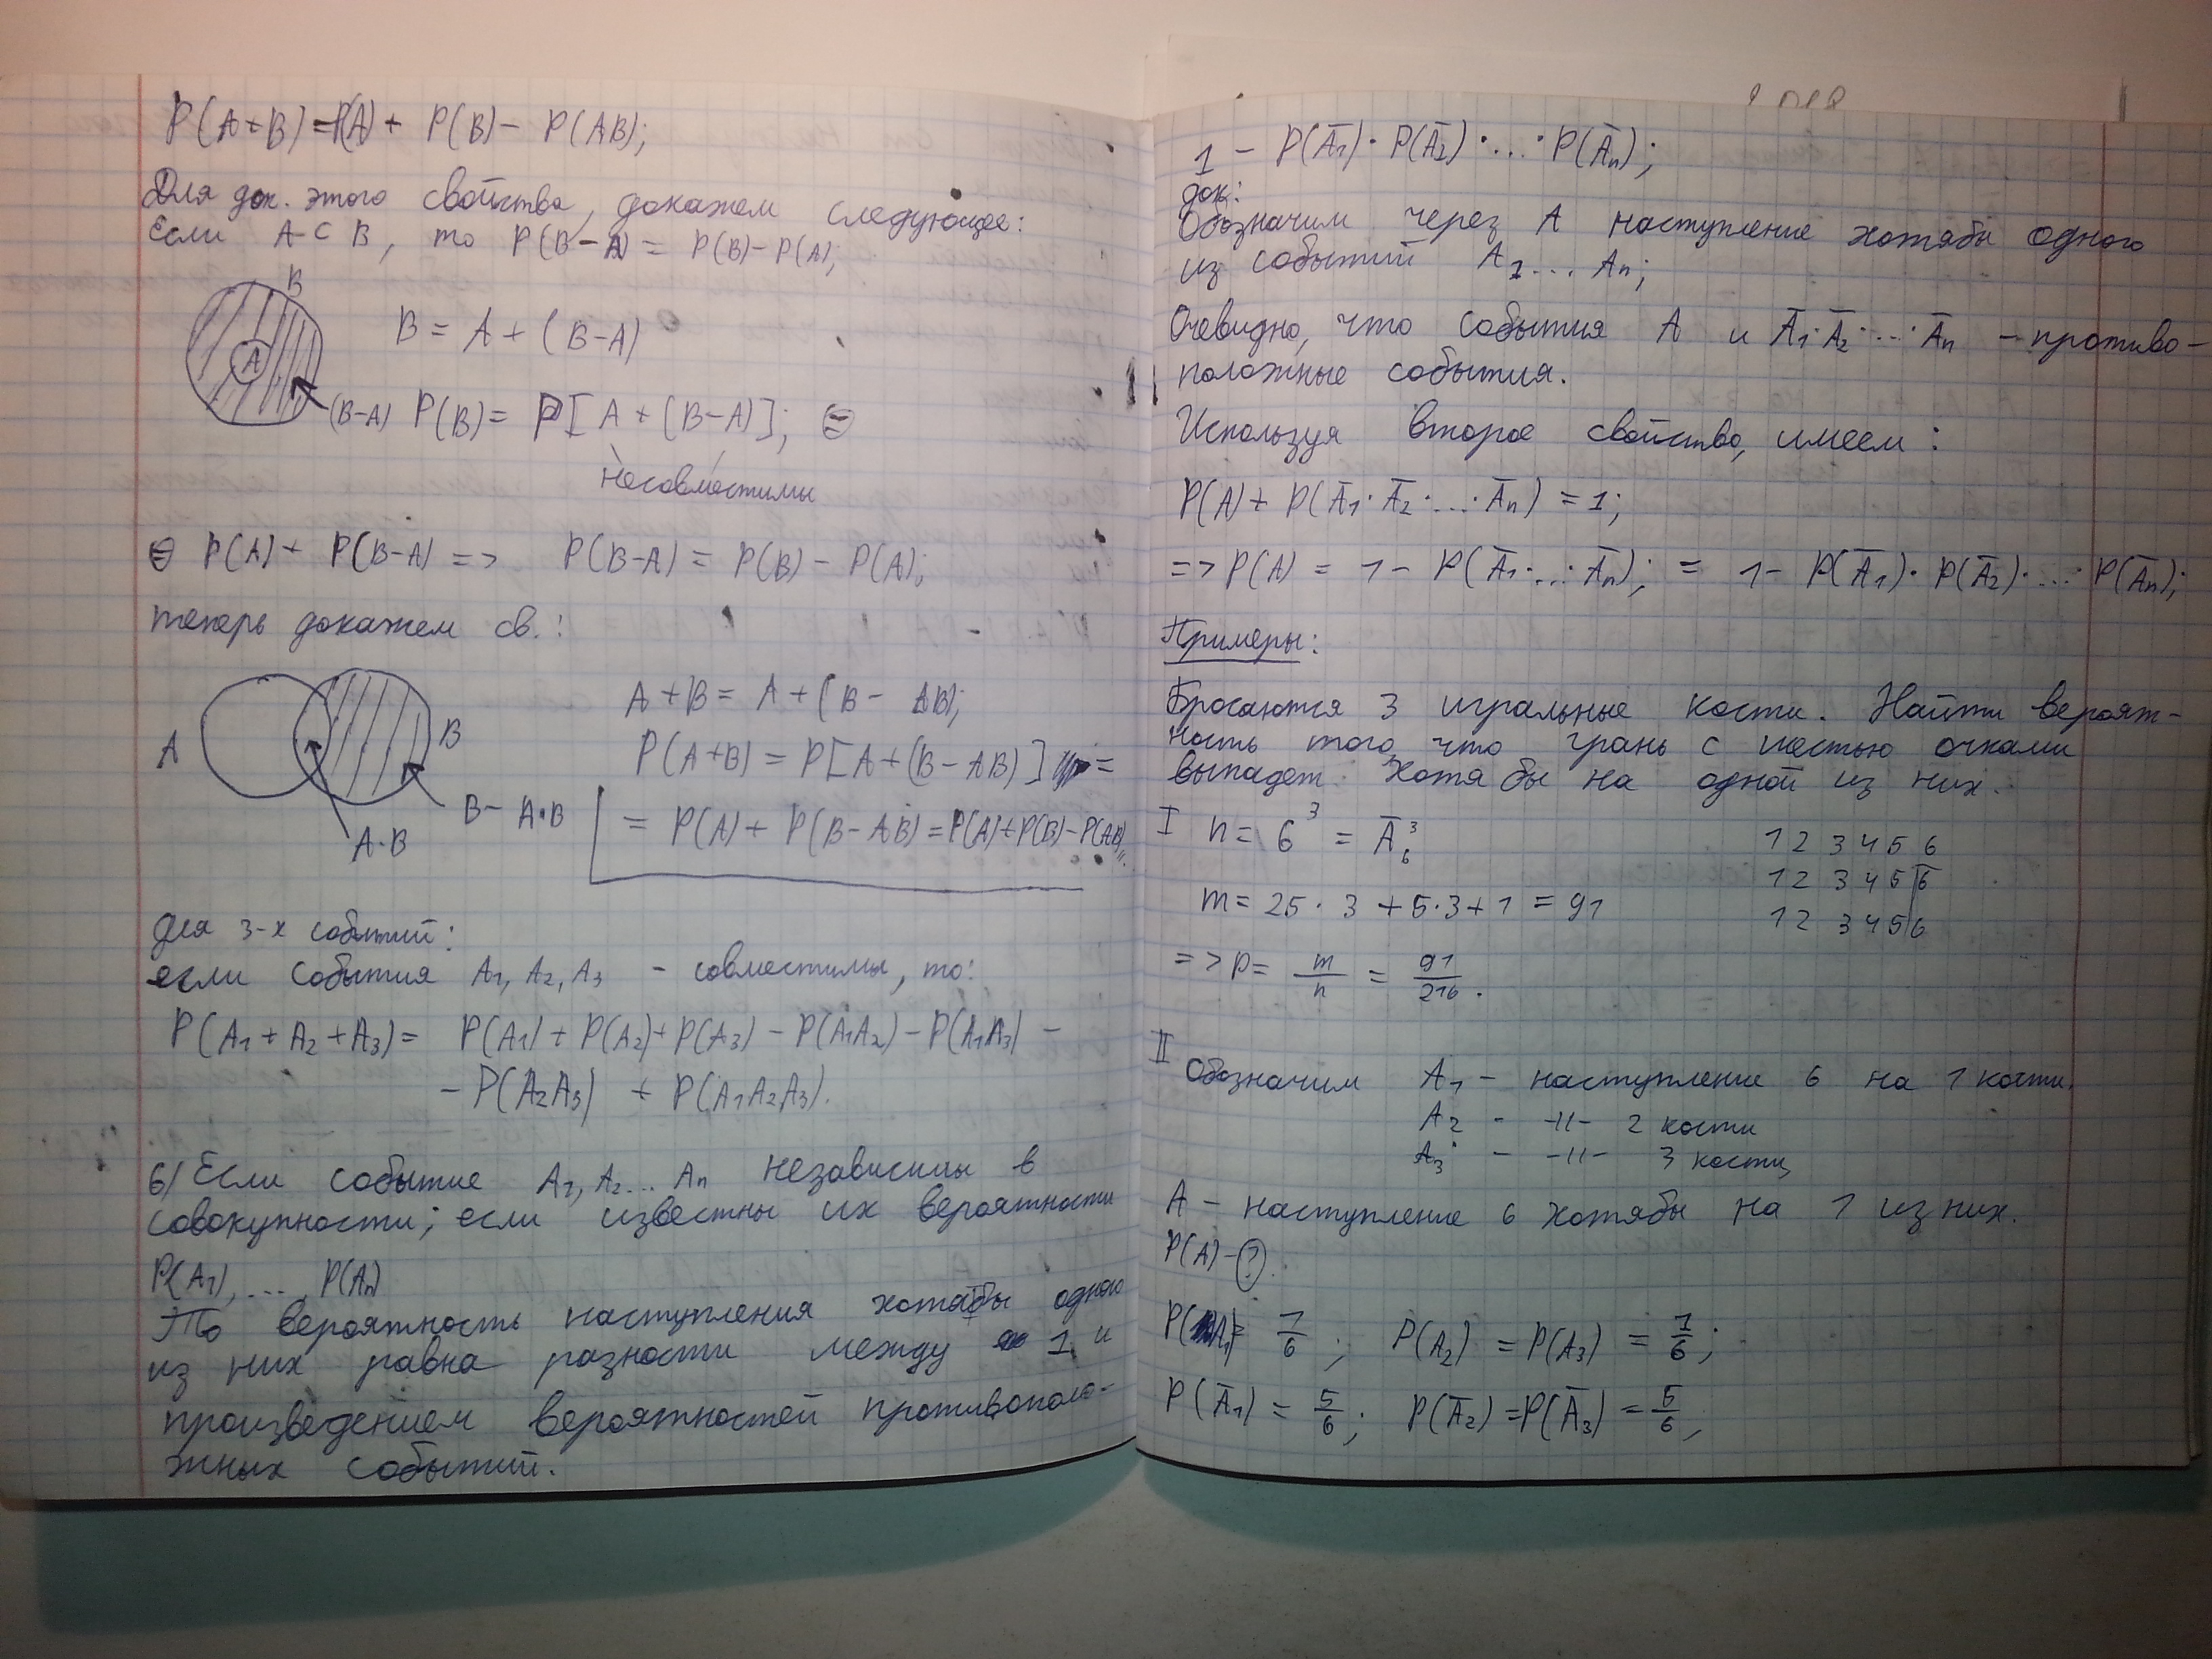 P(A+B)=P(A)+ P(B)- P(AB);
Для док. этого свойства, докажем следующее:
Если A⊂B, то P(B-A) = P(B)-P(A);
B
A
B = A + (B-A)
(B-A) P(B)= P[A+(B-A)]; ⊜
несовместимы
⊜ P(A)+ P(B-A) => P(B-A) = P(B) - P(A);
теперь докажем св.:
A
B
B- A·B
A·B
A+B = A+(B- AB);
P(A+B) = P[A+(B-AB)] =
= P(A)+ P(B-AB)=P(A)+P(B)-P(AB)
для 3-х событий:
если события A₁, A₂, A₃ - совместимы, то:
P(A₁+A₂+A₃)= P(A₁)+P(A₂)+P(A₃)-P(A₁A₂)-P(A₁A₃) -
- P(A₂A₃) + P(A₁A₂A₃).
6) Если событие A₁, A₂... Aₙ независимы в
совокупности; если известны их вероятности
P(A₁), ..., P(Aₙ)
То вероятность наступления хотябы одного
из них равна разности между 1 и
произведением вероятностей противополо-
жных событий.
1 - P(Ā₁)·P(Ā₂)·...·P(Āₙ);
док:
Обозначим через A наступление хотябы одного
из событий A₁... Aₙ;
Очевидно, что события A и Ā₁·Ā₂·...·Āₙ - противо-
положные события.
Используя второе свойство, имеем:
P(A)+ P(Ā₁·Ā₂·...·Āₙ) =1;
=> P(A) = 1- P(Ā₁·...·Āₙ); = 1- P(Ā₁)·P(Ā₂)·...·P(Āₙ);
Примеры:
Бросаются 3 игральные кости. Найти вероят-
ность того что грань с шестью очками
выпадет хотя бы на одной из них.
I n= 6³ = Ā₆³
1 2 3 4 5 6
1 2 3 4 5 6
1 2 3 4 5 6
m= 25·3 +5·3+1 = 91
=> p= m/n = 91/216.
II Обозначим A₁ - наступление 6 на 1 кости.
A₂ - -11- 2 кости
A₃ - -11- 3 кости
A - наступление 6 хотябы на 1 из них.
P(A)-?.
P(A₁)= 1/6; P(A₂) = P(A₃) = 1/6;
P(Ā₁) = 5/6; P(Ā₂)=P(Ā₃)=5/6;